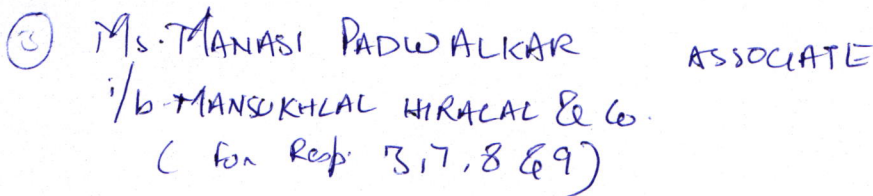 ③ Ms. MANASI PADWALKAR ASSOCIATE
i/b MANSUKHLAL HIRALAL & Co.
( For Resp. 3, 7, 8 & 9)